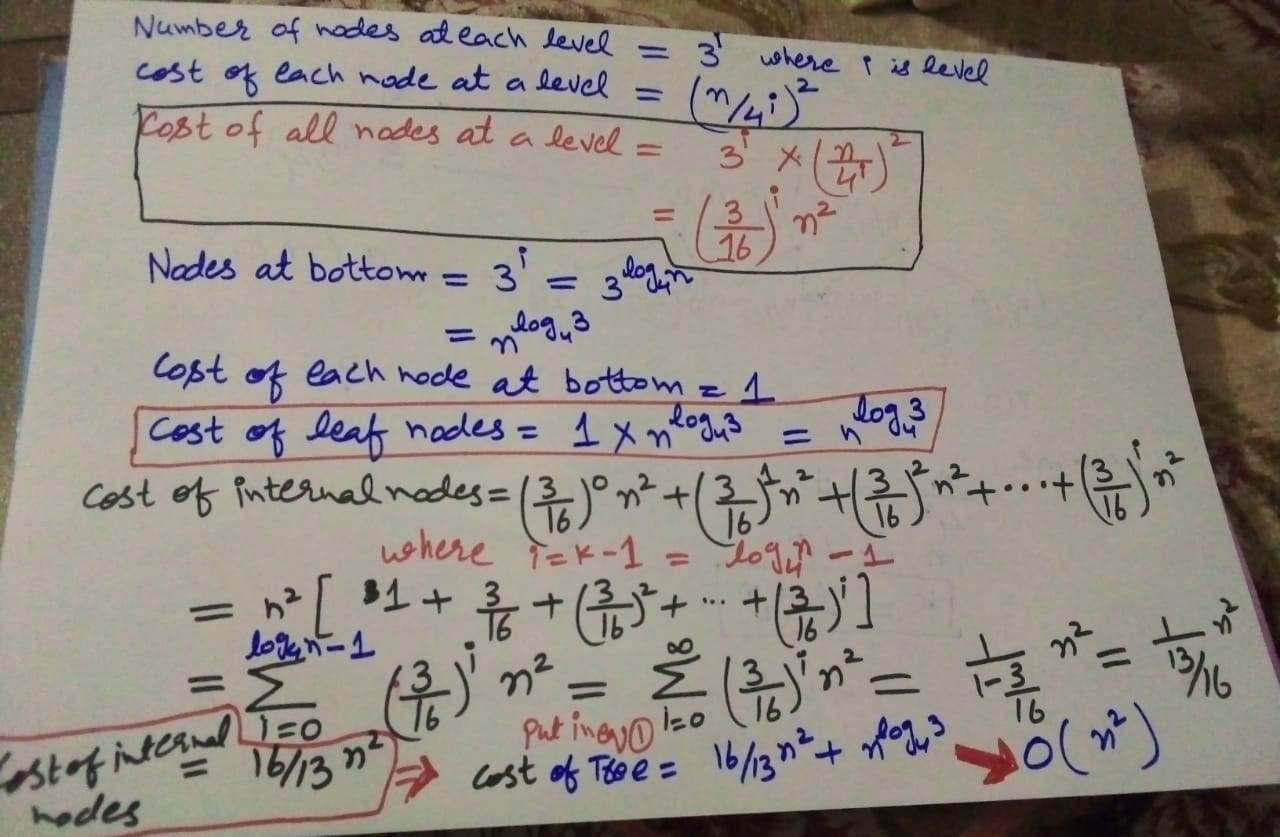 Number of nodes at each level = 3^i where i is level
cost of each node at a level = (n/4^i)^2
Cost of all nodes at a level = 3^i × (n/4^i)^2
= (3/16)^i n^2
Nodes at bottom = 3^i = 3^log₄n
= n^log₄3
Cost of each node at bottom = 1
Cost of leaf nodes = 1 × n^log₄3 = n^log₄3
Cost of internal nodes = (3/16)^0 n^2 + (3/16)^1 n^2 + (3/16)^2 n^2 + ... + (3/16)^i n^2
where i = k-1 = log₄n - 1
= n^2 [ 1 + 3/16 + (3/16)^2 + ... + (3/16)^i ]
= Σ_{i=0}^{log₄n-1} (3/16)^i n^2 = Σ_{i=0}^{∞} (3/16)^i n^2 = 1/(1-3/16) n^2 = 1/(13/16) n^2
Cost of internal nodes = 16/13 n^2 ⇒ Put in eq ① cost of Tree = 16/13 n^2 + n^log₄3 → O(n^2)